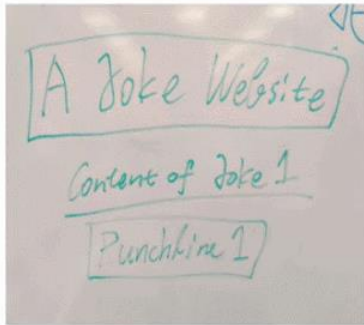 A Joke Website
Content of Joke 1
Punchline 1